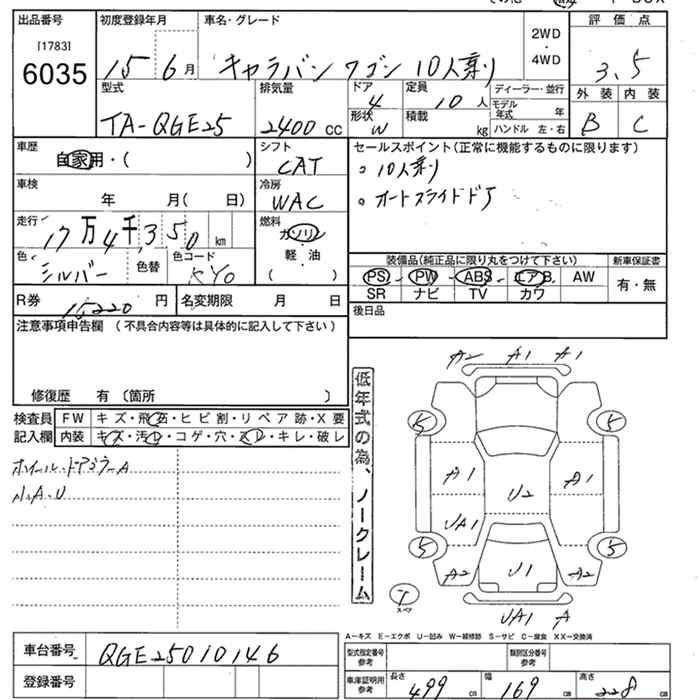 出品番号 初度登録年月 車名・グレード 2WD・4WD 評価点
[1783]
6035 15 6月 キャラバン ワゴン 10人乗り 3.5
型式 排気量 ドア 4 定員 10人 ディーラー・並行 外装 内装
TA-QGE25 2400cc 形状 W 積載 kg モデル年式 年 B C
ハンドル 左・右
車歴 自家用・( ) シフト CAT セールスポイント(正常に機能するものに限ります)
。10人乗り
車検 年 月( 日) 冷房 WAC 。オートスライドドア
走行 17万4千350km 燃料 ガソリン
色 シルバー 色替 色コード KY0 軽・油 ( )
装備品(純正品に限り丸をつけて下さい) 新車保証書
PS PW ABS エアB. AW 有・無
SR ナビ TV カワ
R券 円 名変期限 月 日 後日品
注意事項申告欄 (不具合内容等は具体的に記入して下さい)
修復歴 有 〔箇所 〕
検査員記入欄 FW キズ・飛石・ヒビ割・リペア跡・X要
内装 キズ・汚レ・コゲ・穴・スレ・キレ・破レ
ホイール・ドアミラーA
小A.U
低年式の為、ノークレーム
A2 A1 A1
5 5
A1 U2 A1
UA1
5 5
A2 U1 A2
T
スペア
UA1 A
A-キズ E-エクボ U-凹み W-補修跡 S-サビ C-腐食 XX-交換済
車台番号 QGE25010146 型式指定番号参考 類別区分番号参考
登録番号 車庫証明用参考 長さ 499cm 幅 169cm 高さ 228cm